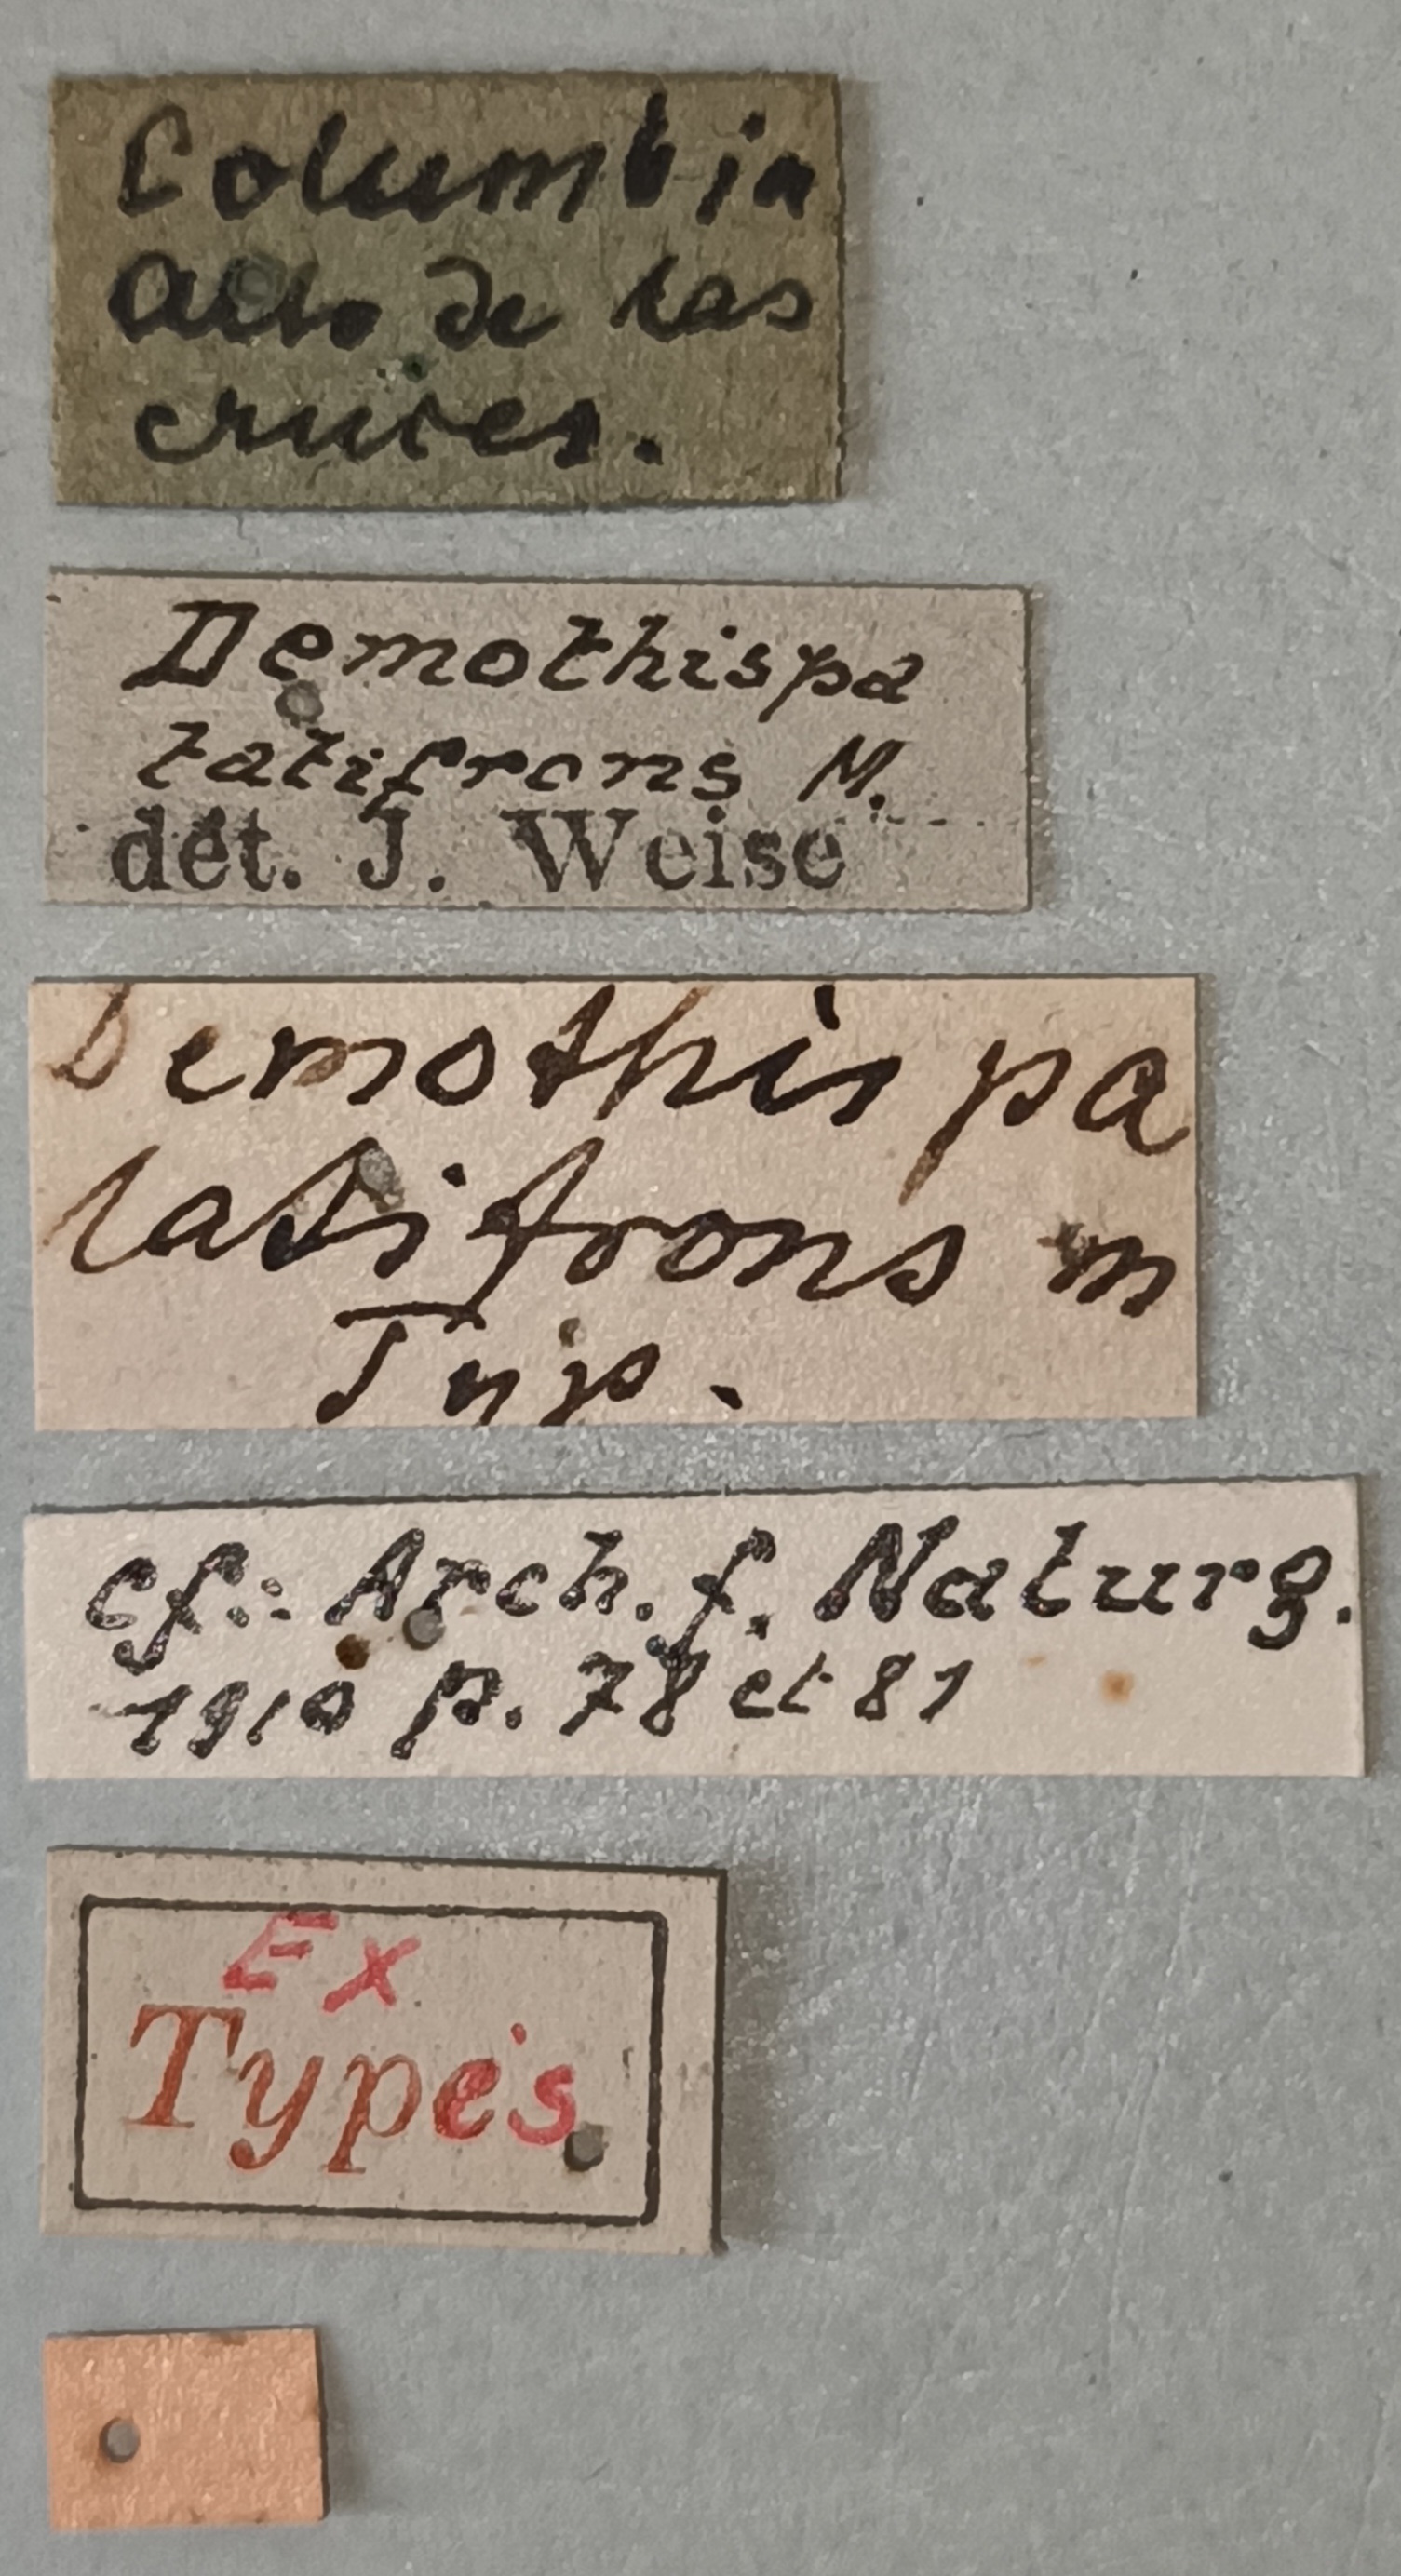 Columbia
Alto de las
cruces.
Demothispa
latifrons M.
dét. J. Weise
Demothispa
latifrons m
Typ.
cf.: Arch. f. Naturg.
1910 p. 78 et 81
Ex
Types